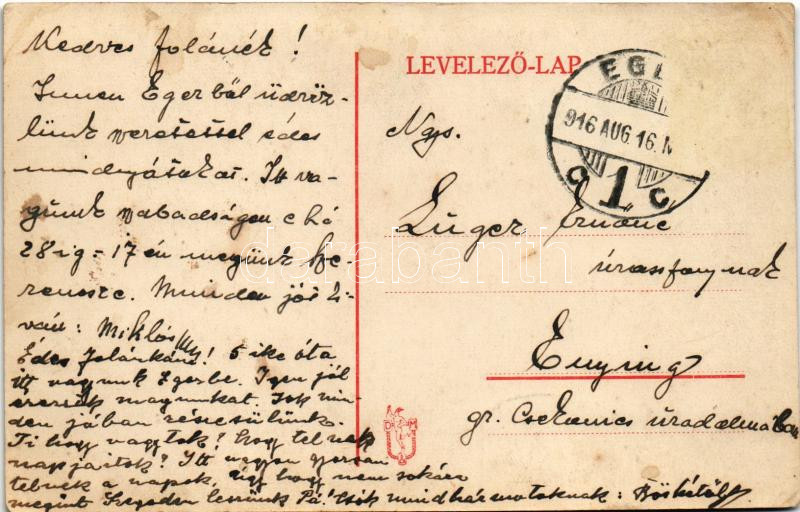 Kedves Jolánék!
Innen Egerből üdvöz-
lünk szeretettel édes
mindnyájatokat. Itt va-
gyunk szabadságon e hó
28 ig - 17 én megyünk Sze-
rencsre. Minden jót kí-
ván: Miklós
Édes Jolánkám! 5 ike óta
itt vagyunk Egerbe. Igen jól
érezzük magunkat. Sok min-
den jóban részesülünk.
Ti hogy vagytok? Hogy telnek
napjaitok? Itt nagyon gyorsan
telnek a napok, úgy hogy nem sokára
megint Szegeden leszünk Pá! Csók mindhármatoknak:
LEVELEZŐ-LAP
EG
916 AUG. 16.
1
Ngs.
Luger Ernőné
úrasszonynak
Enying
gr. Csekonics uradalmában
darabanth